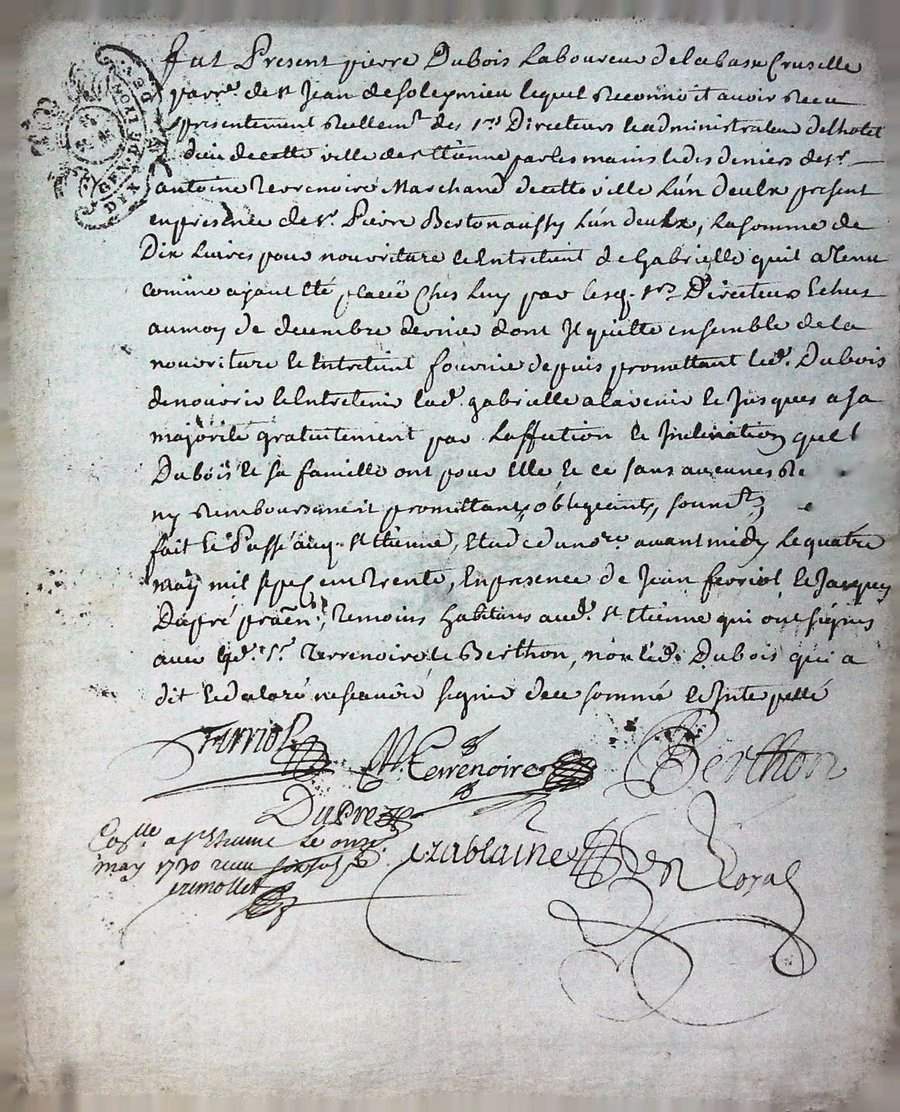 GEN. D. LION
DIX
fut Present pierre Dubois Laboureur de la basse Cruselle
parre. de st Jean de soleymieu lequel Reconnoit avoir Receu
presentement Reellemt. des srs Directeurs & administrateur de lhotel
dieu de cette ville de st Etienne par les mains & des deniers de sr.
antoine Terrenoire Marchand de cette ville Lun deulx present
en presence de sr. Pierre Berthon aussy Lun deulx, La somme de
Dix Livres pour nourriture & Entretient de Gabrielle quil a Tenu
comme ayant Eté placée Chés Luy par lesd. srs Directeurs Echus
au moy de decembre dernier dont Il quitte ensemble de la
nourriture & Entretient fournie depuis promettant led. Dubois
de nourrir & Entretenir lad. gabrielle a lavenir & Jusques a sa
majorité gratuitement par Laffection & Inclination que l
Dubois & sa famille ont pour Elle & ce sans aucunes Re
ny Remboursement promettant, obligeant, soumett
fait & Passé aud. st Etienne, Etude du nore. avant midy Le quatre
may mil sept cent trente, En presence de Jean ferriol & Jacques
Dupré praen., Temoins habitans aud. st Etienne qui ont signés
avec lesd. srs. Terrenoire & Berthon, non led. Dubois qui a
dit & declaré ne scavoir signer de ce sommé & Interpellé
Farriol
Terrenoire
Berthon
Dupré
Collé a st Etienne Le onze
may 1730 receu
Cazablaine
Roval